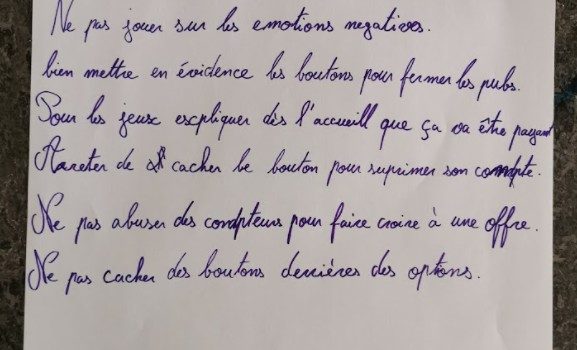 Ne pas jouer sur les emotions negatives.
bien mettre en évidence les boutons pour fermer les pubs.
Pour les jeux escpliquer dès l'accueill que ça va être payant
Arreter de cacher le bouton pour suprimer son compte.
Ne pas abuser des compteurs pour faire croire à une offre.
Ne pas cacher des boutons derrières des options.